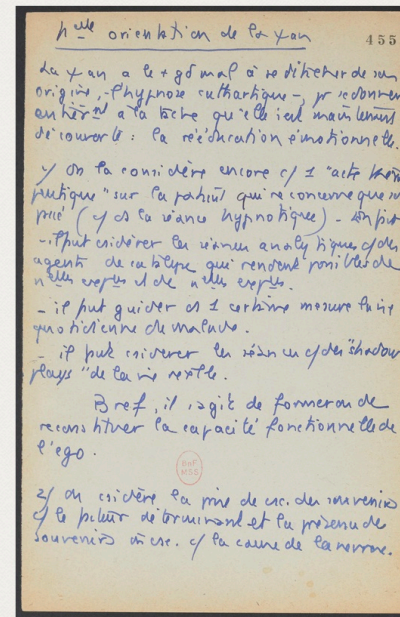 nelle orientation de la ψan
455
La ψan a le + gd mal à se détacher de son
origine, - l'hypnose cathartique -, pr se donner
entièrt à la tâche qu'elle vient maintenant
découverte : la rééducation émotionnelle.
1/ On la considère encore c/ 1 "acte théra
peutique" sur le patient qui ne concerne que son
psé (c/ ds la séance hypnotique) -
- il put csidérer les séances analytiques c/ des
agents de catalyse qui rendent possibles de
nelles et de nelles
- il put guider ds 1 certaine mesure la vie
quotidienne du malade.
- il put csiderer les séances c/ des "shadow
plays" de la vie réelle.
Bref, il s'agit de former ou de
reconstituer la capacité fonctionnelle de
l'ego.
BnF
MSS
2/ On csidère la prise de csc. des souvenirs
c/ le facteur déterminant et la présence de
souvenirs incsc. c/ la cause de la névrose.